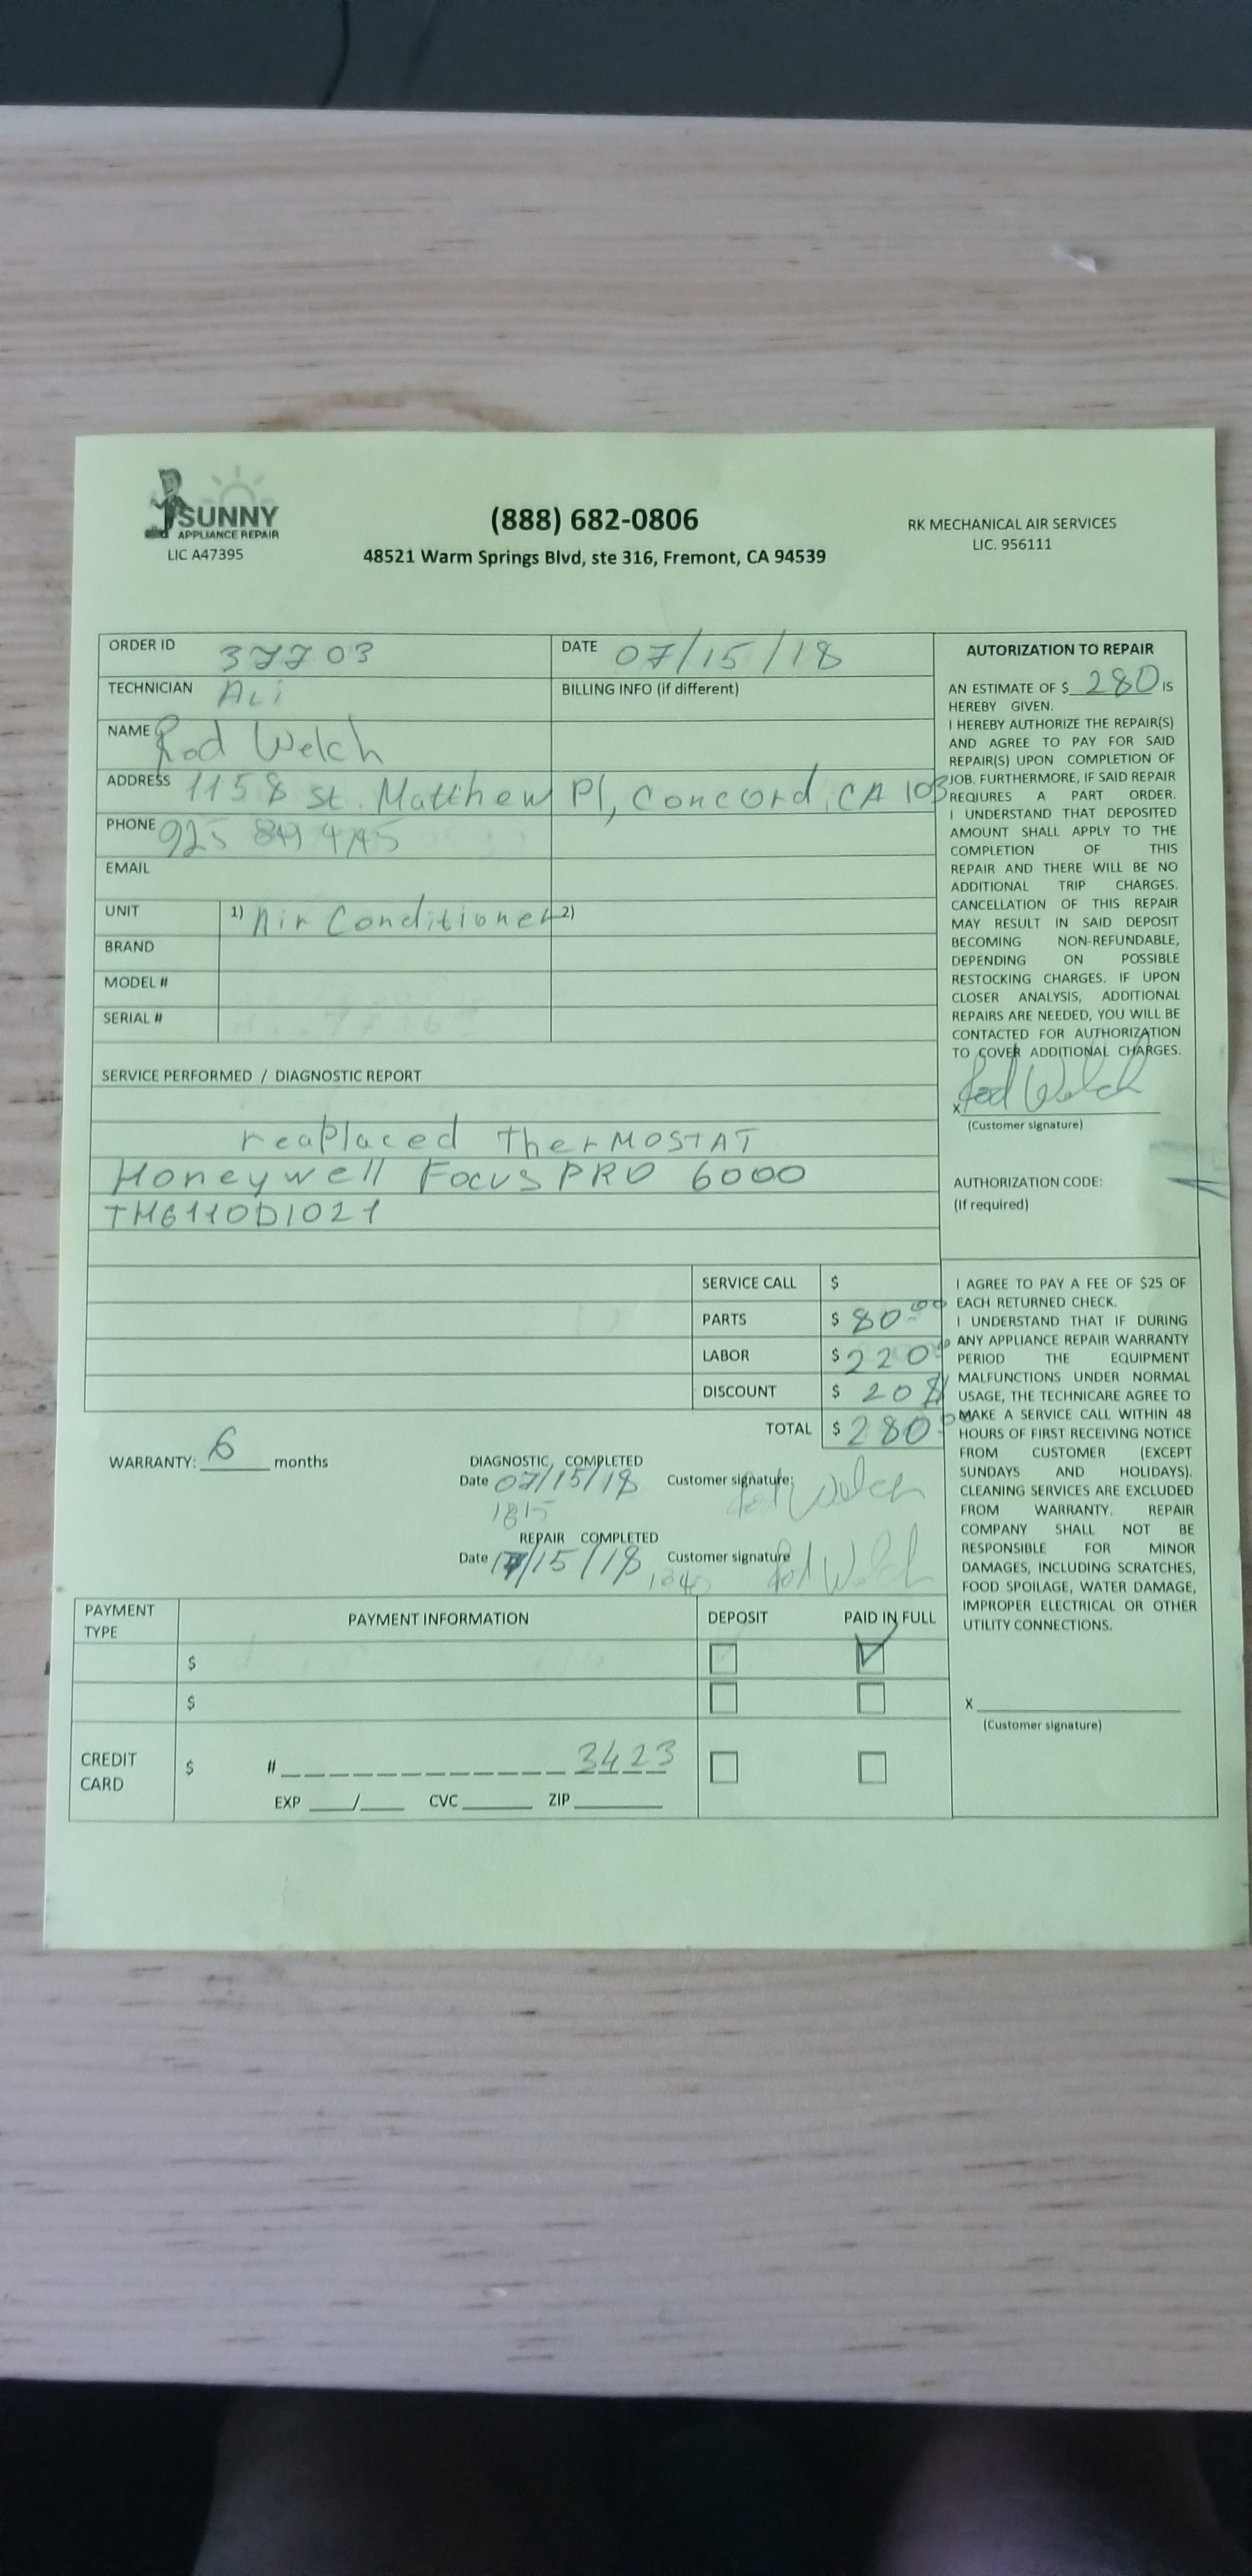 SUNNY
APPLIANCE REPAIR
LIC A47395
(888) 682-0806
48521 Warm Springs Blvd, ste 316, Fremont, CA 94539
RK MECHANICAL AIR SERVICES
LIC. 956111
ORDER ID 37703
DATE 07/15/18
TECHNICIAN Ali
BILLING INFO (if different)
NAME Rod Welch
ADDRESS 1158 St. Matthew Pl, Concord, CA 103
PHONE 925
EMAIL
UNIT 1) Air Conditioner 2)
BRAND
MODEL #
SERIAL #
SERVICE PERFORMED / DIAGNOSTIC REPORT
reaplaced TherMOSTAT
Honeywell FocusPRO 6000
TH6110D1021
SERVICE CALL $
PARTS $ 80.00
LABOR $ 220.00
DISCOUNT $ 20
TOTAL $ 280.00
WARRANTY: 6 months
DIAGNOSTIC COMPLETED
Date 07/15/18 Customer signature: Rod Welch
1815
REPAIR COMPLETED
Date /15/18 Customer signature Rod Welch
PAYMENT TYPE
PAYMENT INFORMATION
DEPOSIT
PAID IN FULL
$
$
CREDIT CARD
$ # 3423
EXP / CVC ZIP
AUTORIZATION TO REPAIR
AN ESTIMATE OF $ 280 IS
HEREBY GIVEN.
I HEREBY AUTHORIZE THE REPAIR(S)
AND AGREE TO PAY FOR SAID
REPAIR(S) UPON COMPLETION OF
JOB. FURTHERMORE, IF SAID REPAIR
REQIURES A PART ORDER.
I UNDERSTAND THAT DEPOSITED
AMOUNT SHALL APPLY TO THE
COMPLETION OF THIS
REPAIR AND THERE WILL BE NO
ADDITIONAL TRIP CHARGES.
CANCELLATION OF THIS REPAIR
MAY RESULT IN SAID DEPOSIT
BECOMING NON-REFUNDABLE,
DEPENDING ON POSSIBLE
RESTOCKING CHARGES. IF UPON
CLOSER ANALYSIS, ADDITIONAL
REPAIRS ARE NEEDED, YOU WILL BE
CONTACTED FOR AUTHORIZATION
TO COVER ADDITIONAL CHARGES.
x Rod Welch
(Customer signature)
AUTHORIZATION CODE:
(If required)
I AGREE TO PAY A FEE OF $25 OF
EACH RETURNED CHECK.
I UNDERSTAND THAT IF DURING
ANY APPLIANCE REPAIR WARRANTY
PERIOD THE EQUIPMENT
MALFUNCTIONS UNDER NORMAL
USAGE, THE TECHNICARE AGREE TO
MAKE A SERVICE CALL WITHIN 48
HOURS OF FIRST RECEIVING NOTICE
FROM CUSTOMER (EXCEPT
SUNDAYS AND HOLIDAYS).
CLEANING SERVICES ARE EXCLUDED
FROM WARRANTY. REPAIR
COMPANY SHALL NOT BE
RESPONSIBLE FOR MINOR
DAMAGES, INCLUDING SCRATCHES,
FOOD SPOILAGE, WATER DAMAGE,
IMPROPER ELECTRICAL OR OTHER
UTILITY CONNECTIONS.
X
(Customer signature)